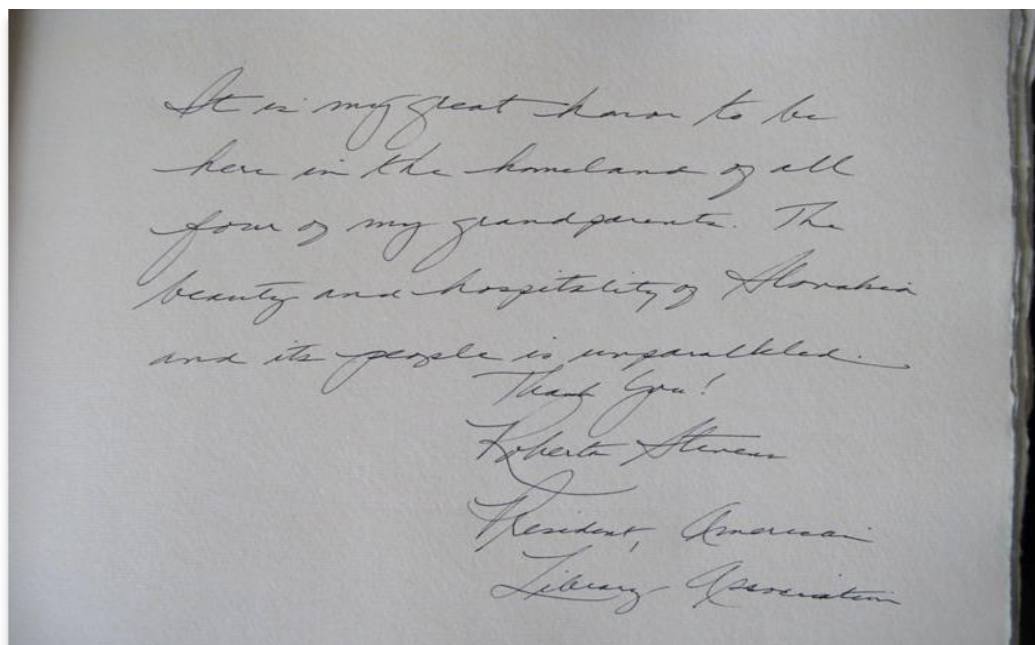 It is my great honor to be
here in the homeland of all
four of my grandparents. The
beauty and hospitality of Slovakia
and its people is unparalleled.
Thank You!
Roberta Stevens
President, American
Library Association